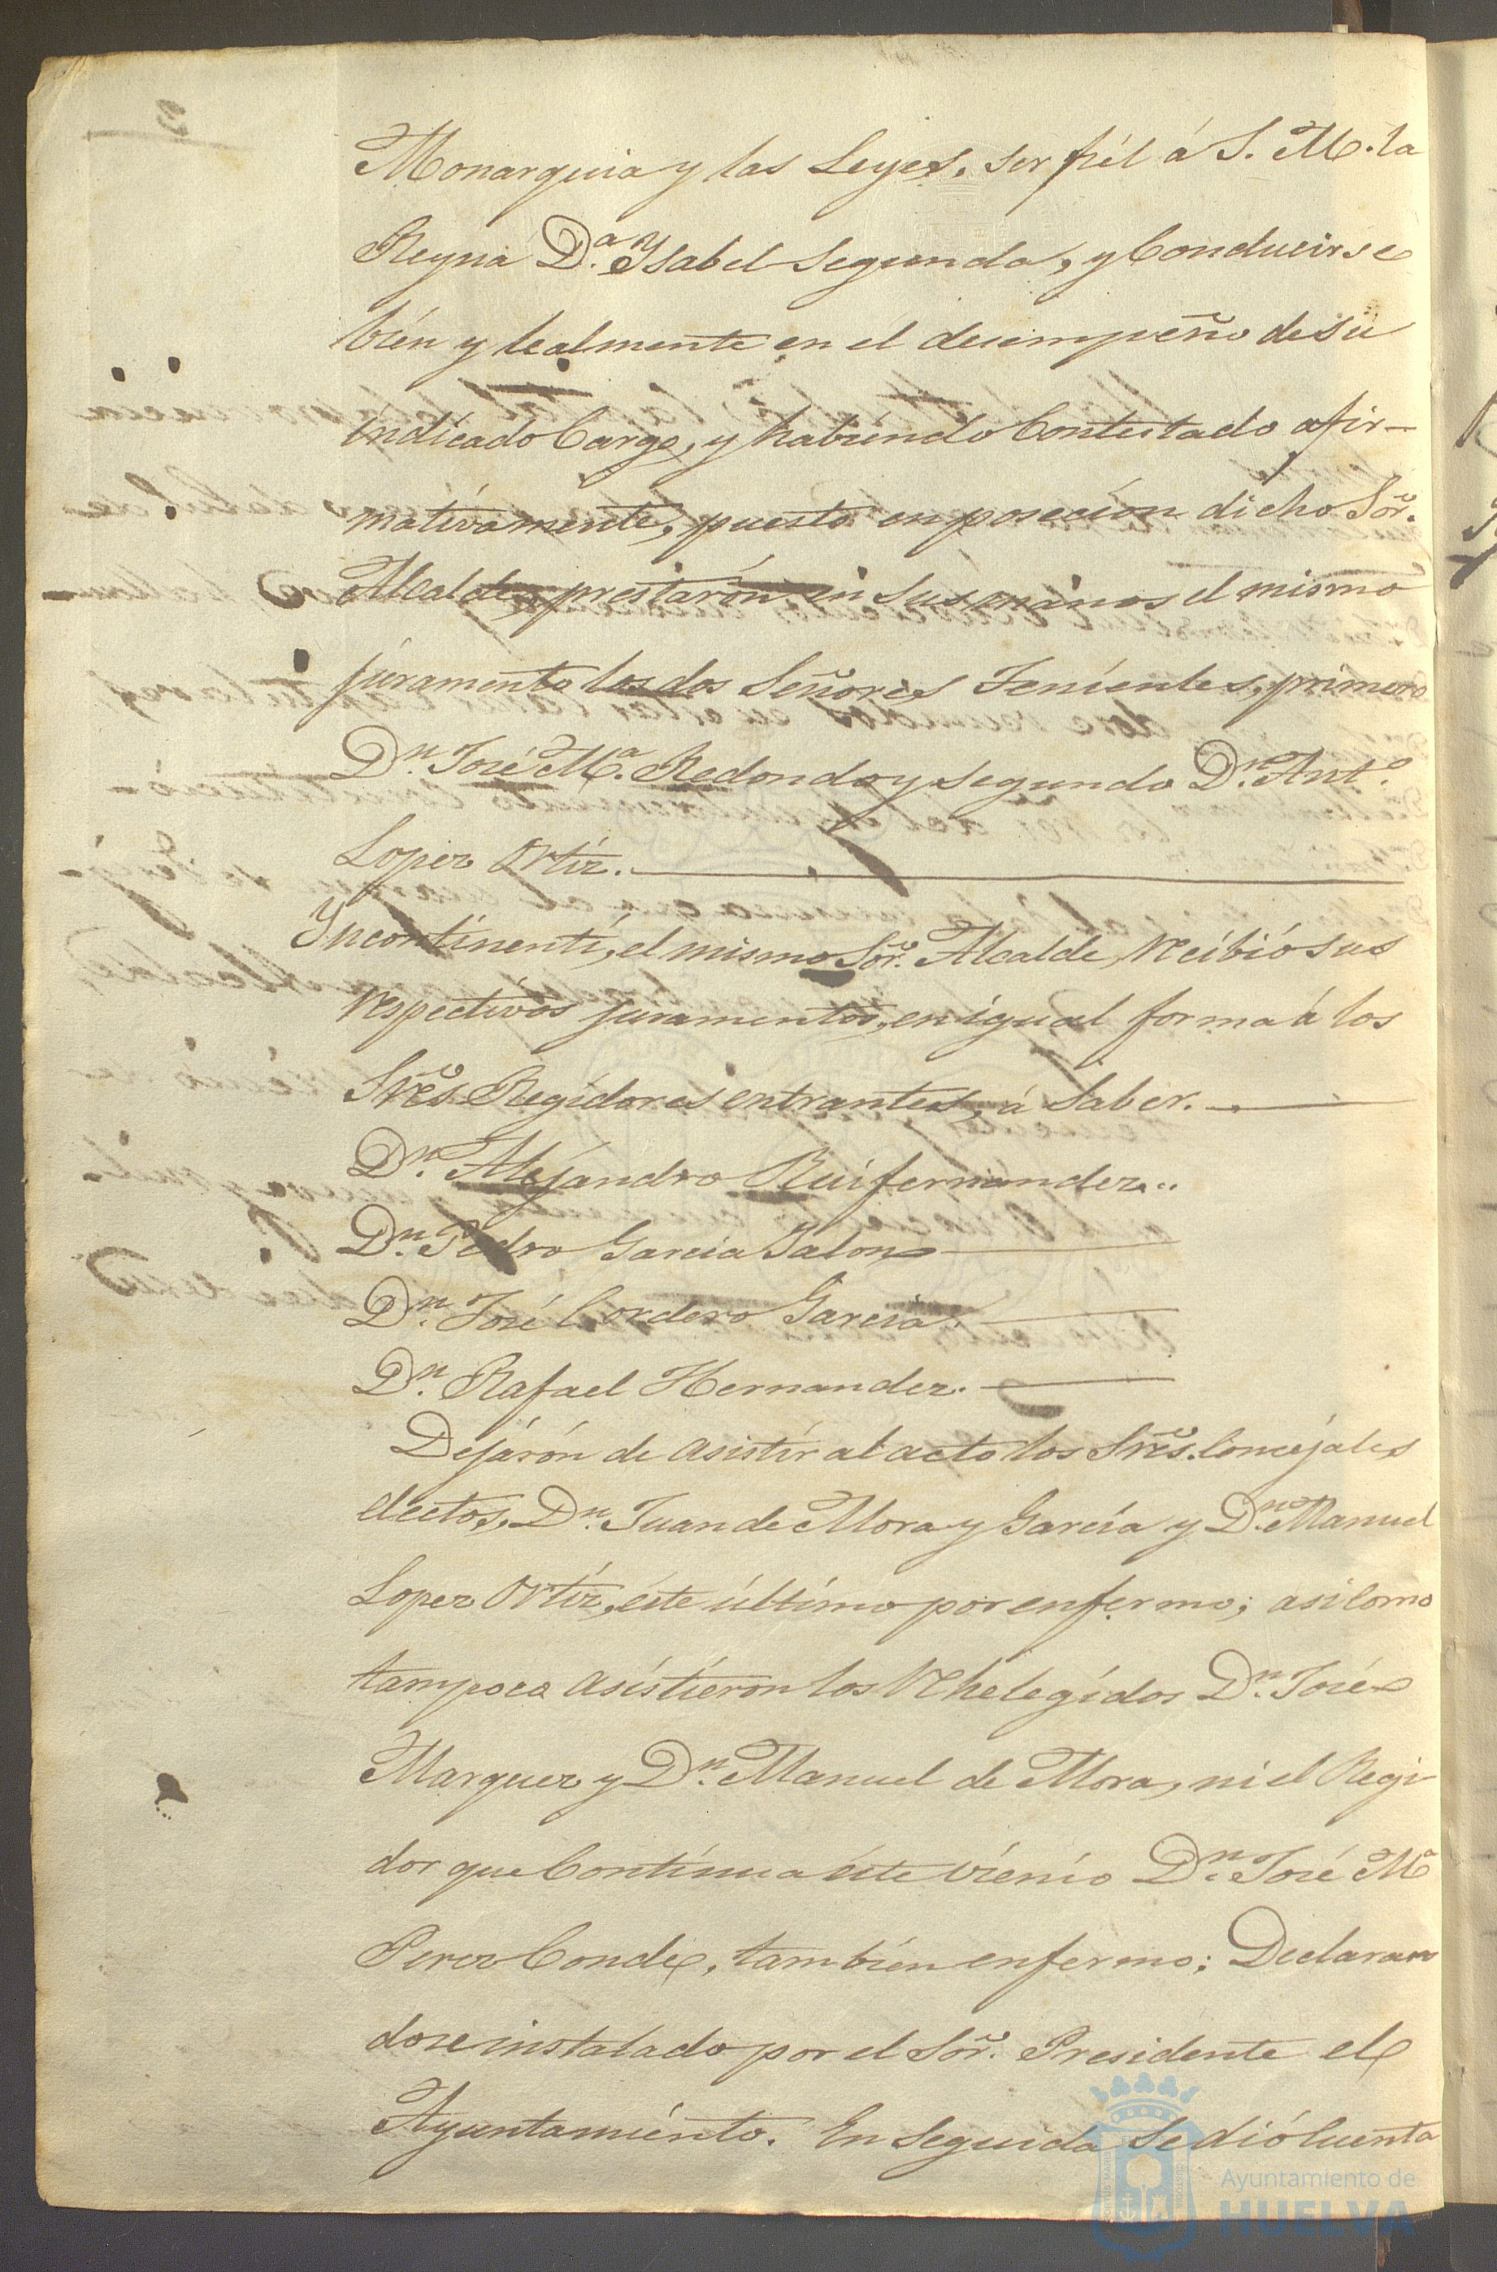 Monarquia y las Leyes, ser fiél á S. M. la
Reyna D.ª Ysabel Segunda, y Conducirse
bien y lealmente en el decempeño de su
indicado Cargo, y habiendo Contestado afir-
mativamente, puesto en posecion dicho Sor.
Alcalde, prestarón en sus manos el mismo
juramento los dos Señores Tenientes, primero
Dn. José Mª. Redondo y segundo Dn. Antº.
Lopez Ortiz.
Yncontinenti, el mismo Sor. Alcalde, recibió sus
respectivos juramentos, en igual forma á los
Sres Regidores entrantes, á Saber.
Dn. Alejandro Ruifernandez..
Dn. Pedro Garcia Jalon
Dn. José Cordero Garcia.
Dn. Rafael Hernandez.
Dejarón de asistir al acto los Sres. Concejales
electos, Dn. Juan de Mora y García y Dn. Manuel
Lopez Ortiz, éste último por enfermo; asi Como
tampoco asistieron los Rhelegidos Dn. José
Marquez y Dn. Manuel de Mora, ni el Regi-
dor que Continua éste vienio Dn. José Mª
Perez Conde, tambien enfermo; Declaran
dose instalado por el Sor. Presidente el
Ayuntamiénto. En Seguida Se dió Cuenta
Ayuntamiento de
HUELVA